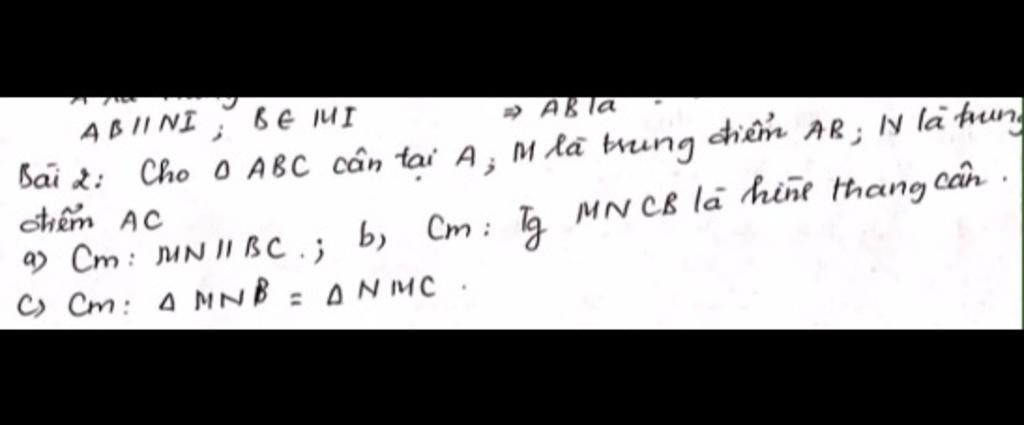 AB // NI ; B ∈ MI ⇒ AB là
Bài 2: Cho Δ ABC cân tại A ; M là trung điểm AB ; N là trung
điểm AC
a) Cm : MN // BC . ; b) Cm : Tg MNCB là hình thang cân .
c) Cm : Δ MNB = Δ NMC .